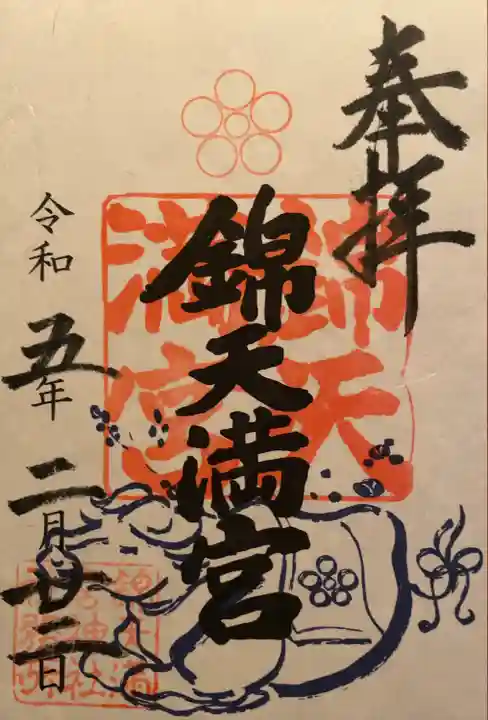 奉拝
錦天満宮
錦天
満宮
令和五年二月廿二日